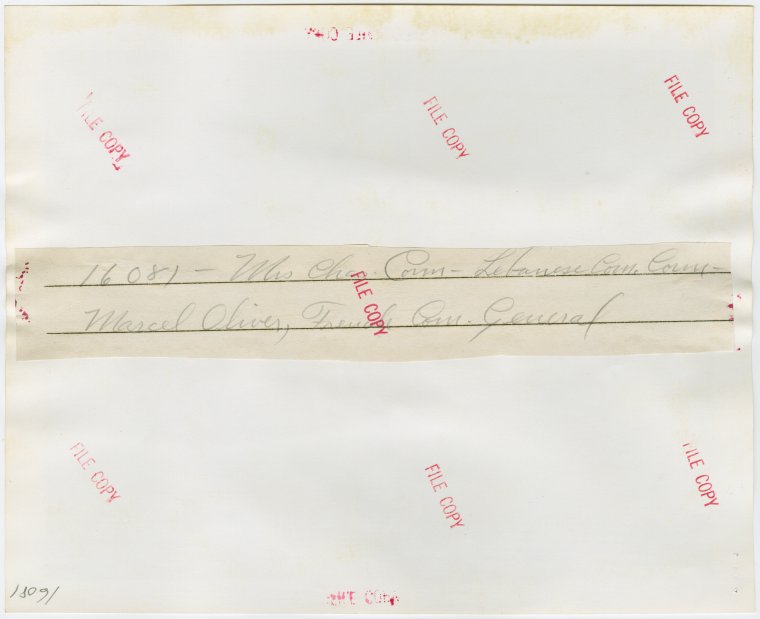 FILE COPY
FILE COPY
FILE COPY
FILE COPY
16081 - Mrs Chas. Conn - Lebanese Com. Comm -
FILE COPY
Marcel Oliver, French Com. General
FILE COPY
FILE COPY
FILE COPY
16091
FILE COPY